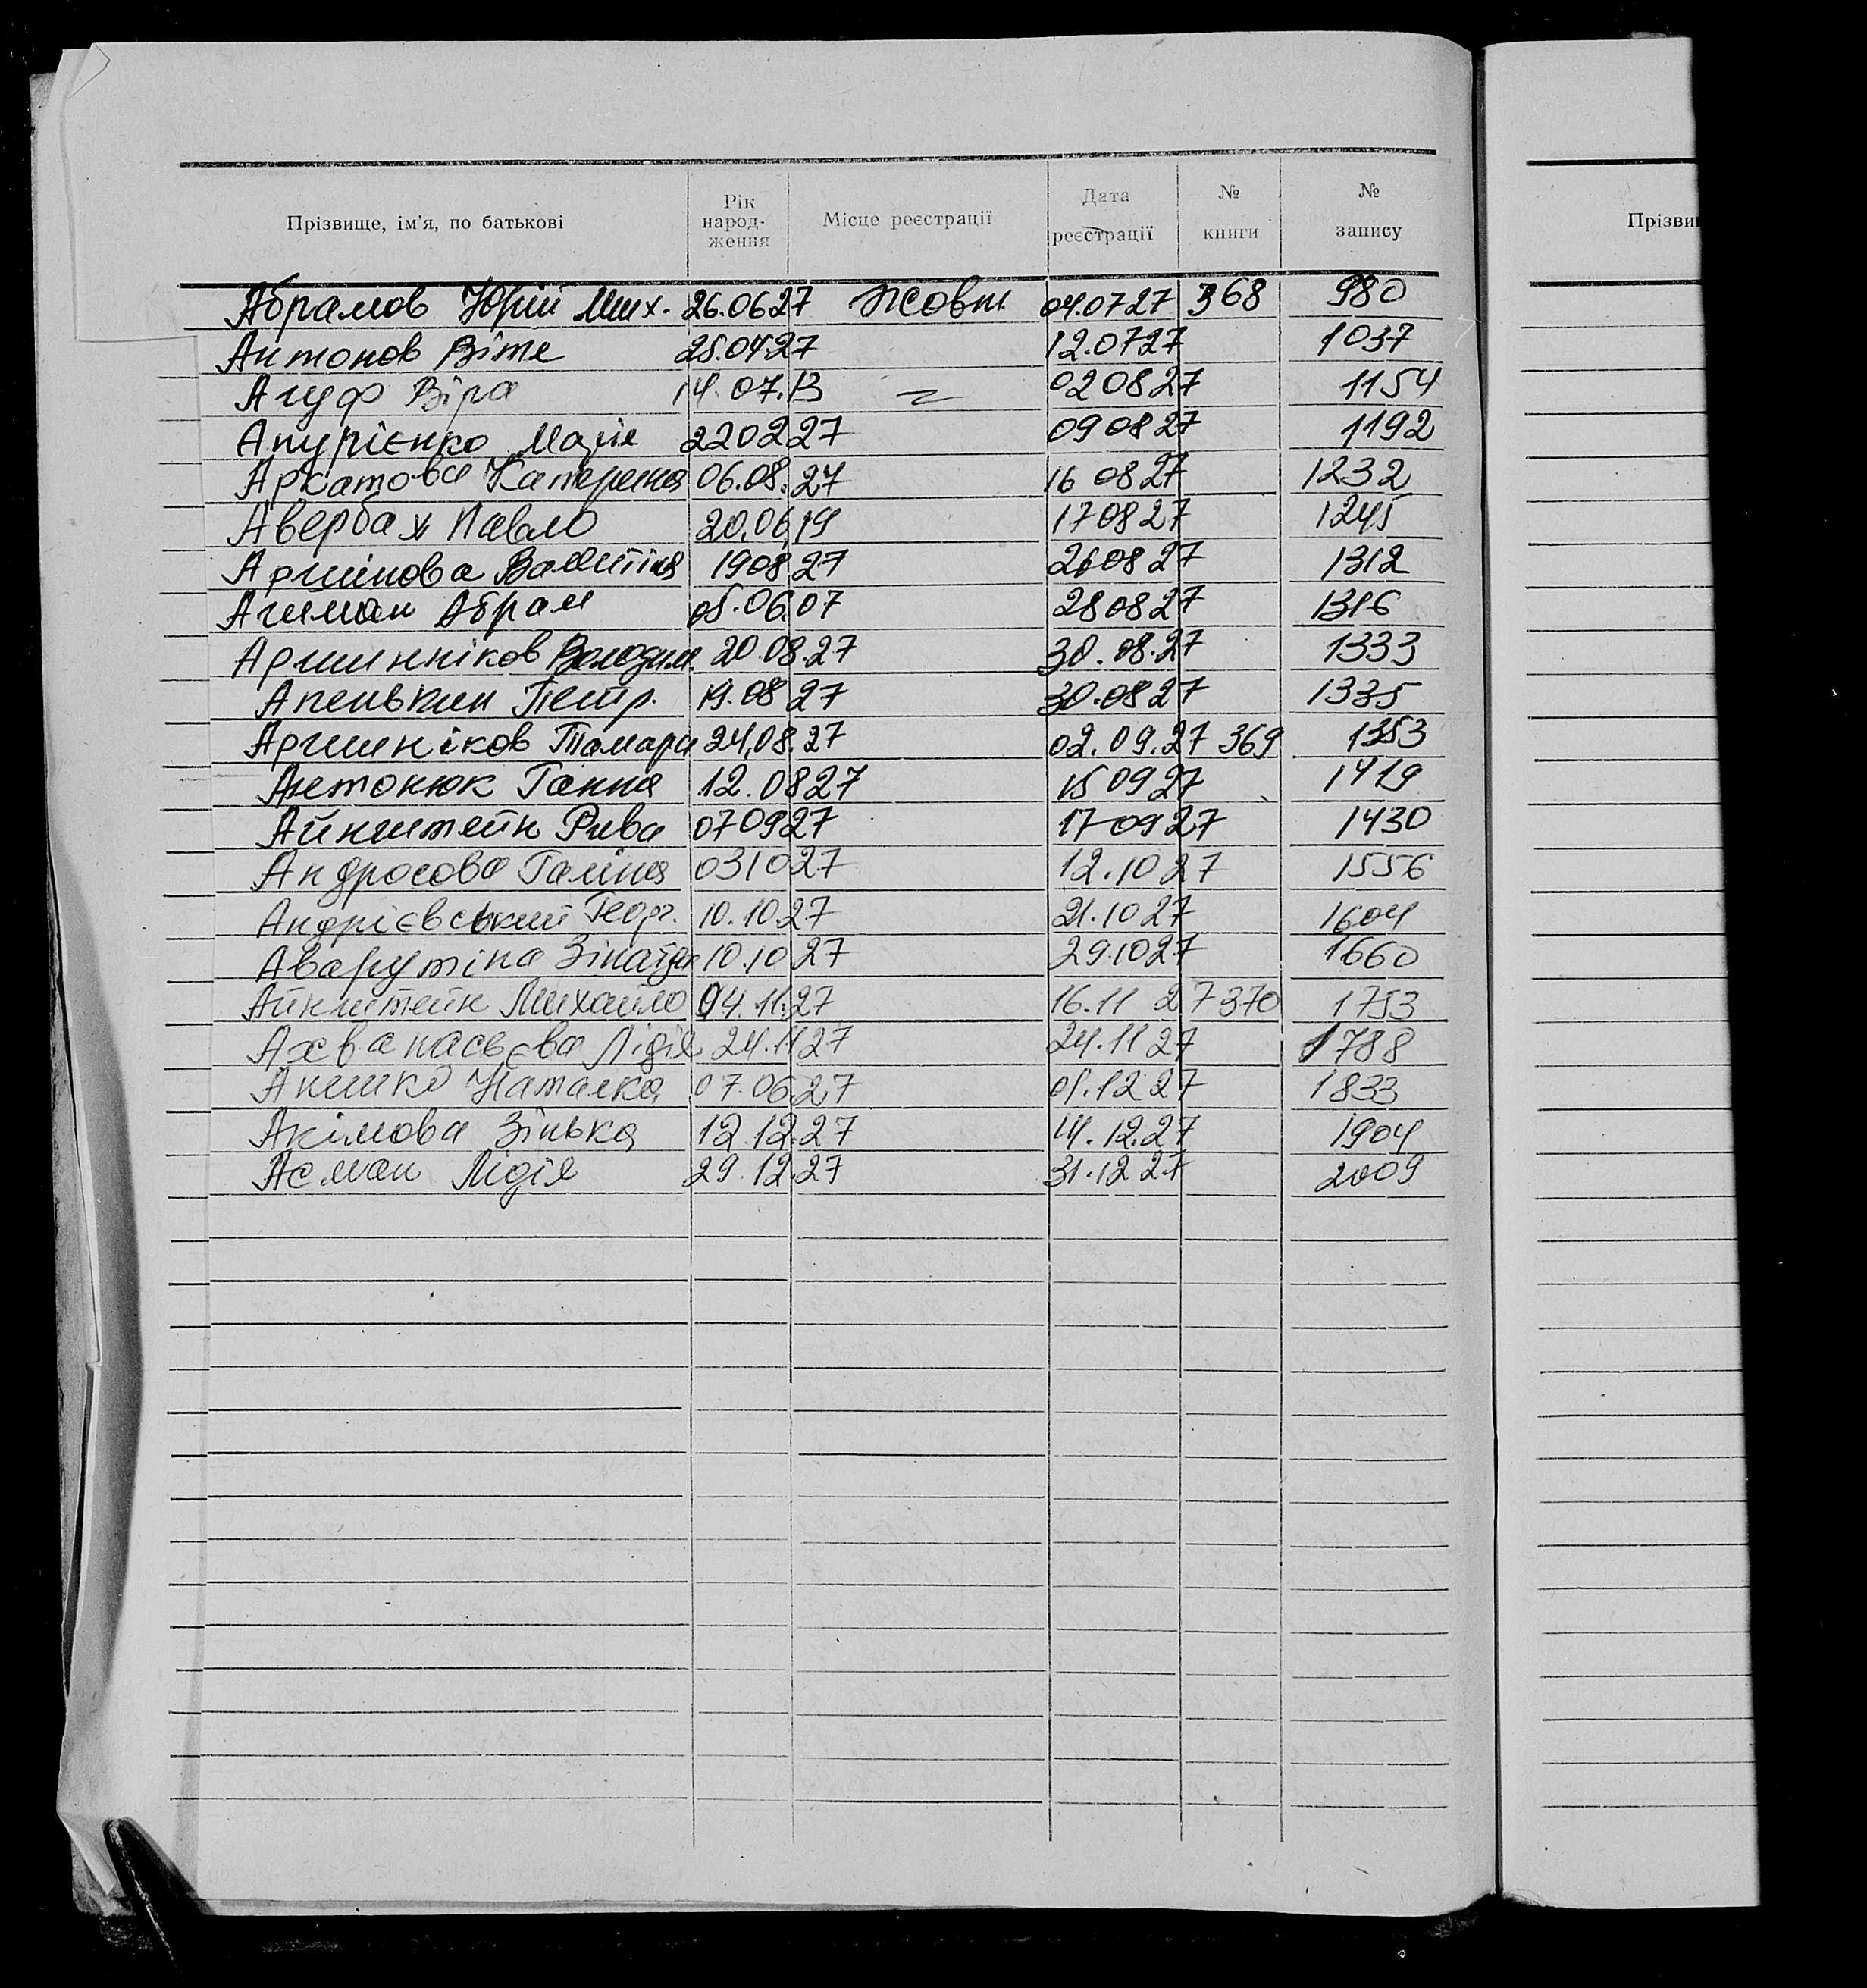 Прізвище, ім'я, по батькові Рік народ- ження Місце реєстрації Дата реєстрації № книги № запису
Прізви
Абрамов Юрій Мих. 26.0627 Жовт. 04.0727 368 980
Антонов Вітя 25.0427 12.0727 1037
Агуф Віра 14.07.13 020827 1154
Марія 220227 090827 1192
Аркатова Катерина 06.08.27 16 0827 1232
Авербах Павло 20.06.19 170827 1245
Аршінова Валентіна 190827 260827 1312
Агиман Абрам 05.06.07 280827 1316
Аршинніков Володим. 20.08.27 30.08.27 1333
Апенькин Петр. 19.0827 30.0827 1335
Аршинніков Тамара 24.08.27 02.09.27 369 1353
Антонюк Ганна 12.0827 150927 1419
Айнштейн Рива 070927 170927 1430
Андросова Галіна 031027 12.1027 1556
Андрієвський Георг. 10.1027 21.1027 1604
Аварутіна Зінаїда 10.1027 29.1027 1660
Айнштейн Михайло 04.11.27 16.11 27 370 1753
Ахванасьєва Лідія 24.1127 24.1127 1788
Акишко Наталка 07.06.27 01.1227 1833
Акімова Зінька 12 12.27 14.12.27 1904
Асман Лідія 29.12.27 31.12 27 2009